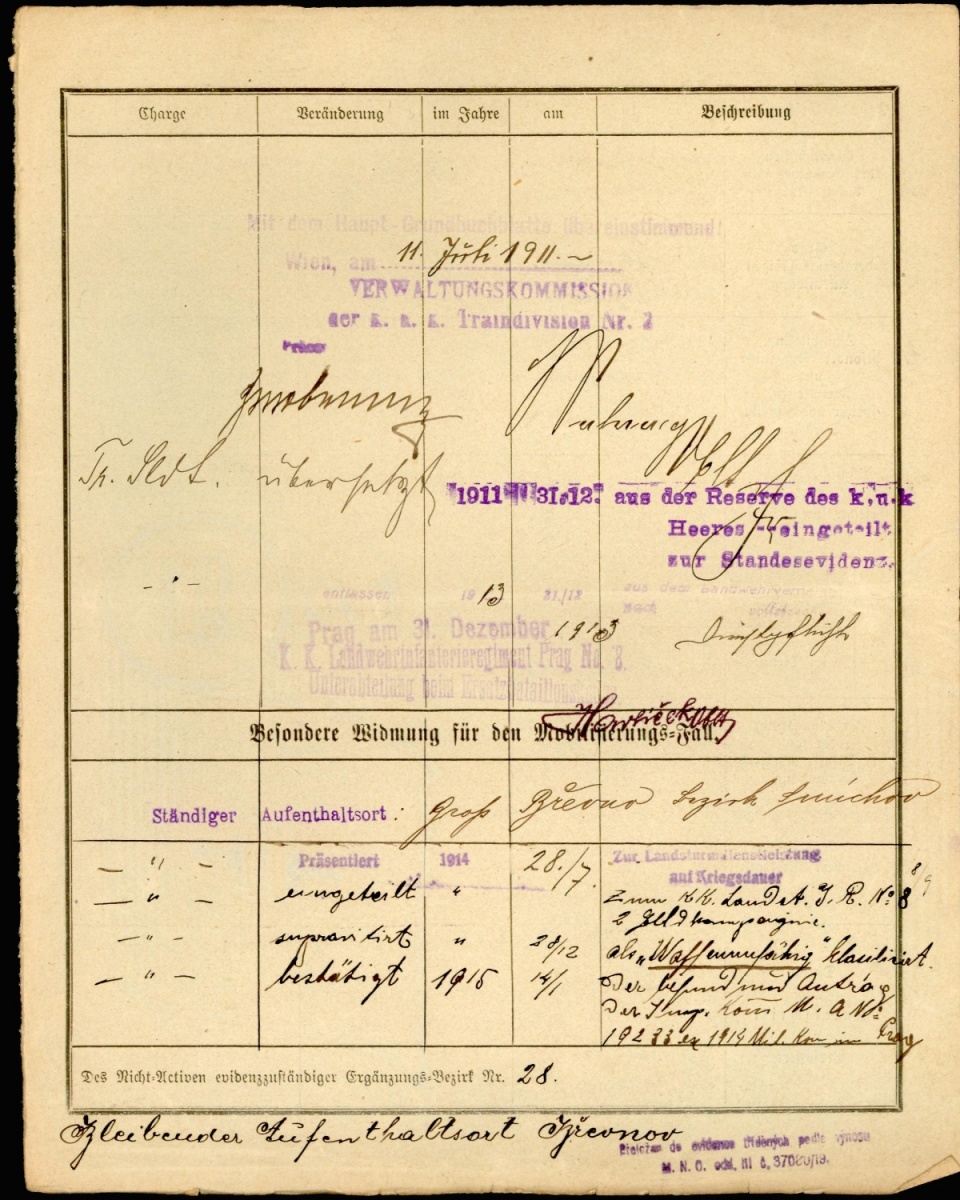 Charge Veränderung im Jahre am Beschreibung
Mit dem Haupt-Grundbuchblatte übereinstimmend!
Wien, am 11. Juli 1911.
VERWALTUNGSKOMMISSION
der k. u. k. Traindivision Nr. 2
Tr. Sldt. übersetzt 1911 31.12. aus der Reserve des k.u.k
Heeres eingeteilt
zur Standesevidenz.
entlassen 1913 31/12 aus dem
nach
Dienstpflicht
Prag am 31. Dezember 1913
K. K. Landwehrinfanterieregiment Prag No. 8.
Unterabteilung beim
Besondere Widmung für den Mobilisierungs-Fall.
Ständiger Aufenthaltsort: Gross Břevno Bezirk Smichov
— " — Präsentiert 1914 28./7. Zur Landsturmdienstleistung
auf Kriegsdauer
— " — eingeteilt " zum k.k. Landst. I. R. No 8 8/9
2 Feldkompagnie.
— " — supravitirt " 28/12 als „Waffenunfähig" klasifizirt.
— " — bestätigt 1915 14/1 Der Befund und Antrag
der
ex 1914 Mil. Kom in Prag
Des Nicht-Activen evidenzzuständiger Ergänzungs-Bezirk Nr. 28.
Bleibender Aufenthaltsort Břevnov
Přeložen do evidence tříděných podle výnosu
M. N. O. odd. III č. 37080/19.